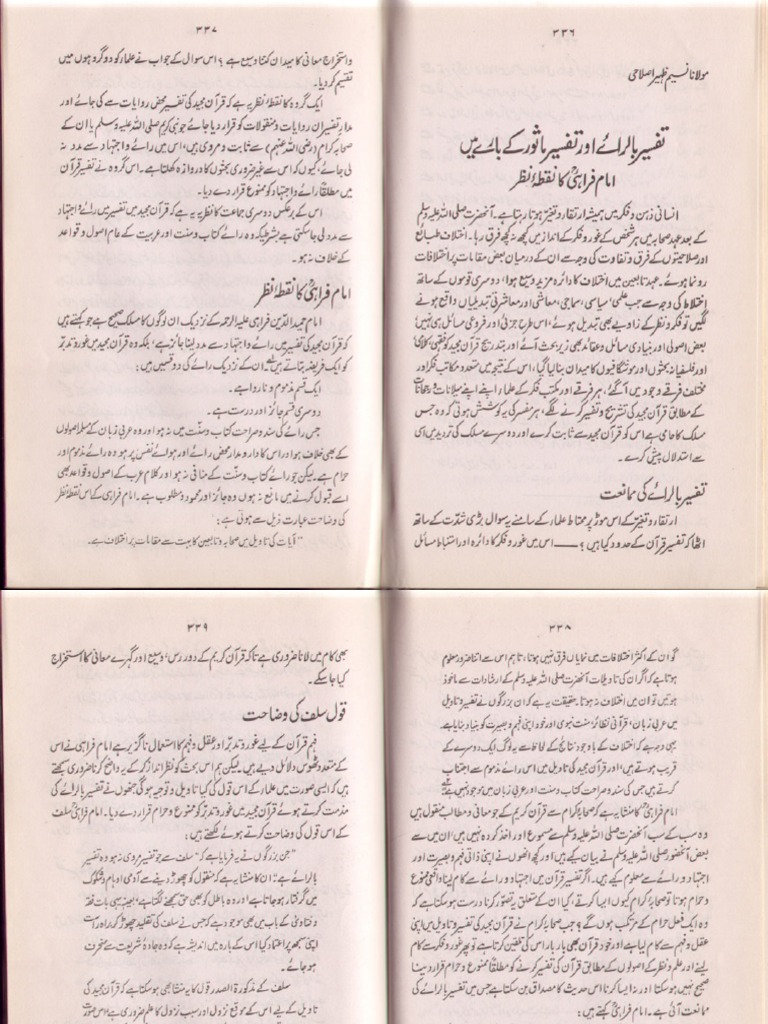 ۳۳۶
مولانا نسیم ظہیر اصلاحی
تفسیر بالرائے اور تفسیر ماثور کے بارے میں
امام فراہیؒ کا نقطۂ نظر
انسانی ذہن و فکر میں ہمیشہ ارتقار و تغیر ہوتا رہتا ہے۔ آنحضرت صلی اللہ علیہ وسلم
کے بعد عہد صحابہ میں ہر شخص کے غور و فکر کے انداز میں کچھ نہ کچھ فرق رہا۔ اختلاف طبائع
اور صلاحیتوں کے فرق و تفاوت کی وجہ سے ان کے درمیان بعض مقامات پر اختلافات
رونما ہوئے۔ عہد تابعین میں اختلاف کا دائرہ مزید وسیع ہوا، دوسری قوموں کے ساتھ
اختلاط کی وجہ سے جب علمی، سیاسی، سماجی، معاشی اور معاشرتی تبدیلیاں واقع ہونے
لگیں تو فکر و نظر کے زاویے بھی تبدیل ہوئے، اس طرح جزئی اور فروعی مسائل ہی نہیں،
بعض اصولی اور بنیادی مسائل و عقائد بھی زیر بحث آئے اور بتدریج قرآن مجید کو فقہی، کلامی
اور فلسفیانہ بحثوں اور موشگافیوں کا میدان بنا لیا گیا، اس کے نتیجہ میں متعدد مکاتب فکر اور
مختلف فرقے وجود میں آگئے، ہر فرقے اور ہر مکتب فکر کے علماء اپنے اپنے میلانات و رجحانات
کے مطابق قرآن مجید کی تشریح و تفسیر کرنے لگے، ہر مفسر کی یہ کوشش ہوتی کہ وہ جس
مسلک کا حامی ہے اس کو قرآن مجید سے ثابت کرے اور دوسرے مسلک کی تردید میں اسی
سے استدلال پیش کرے۔
تفسیر بالرائے کی ممانعت
ارتقار و تغیر کے اس موڑ پر محتاط علماء کے سامنے یہ سوال بڑی شدّت کے ساتھ
اٹھا کہ تفسیر قرآن کے حدود کیا ہیں؟ — اس میں غور و فکر کا دائرہ اور استنباط مسائل
۳۳۷
و استخراج معانی کا میدان کتنا وسیع ہے؟ اس سوال کے جواب نے علماء کو دو گروہوں میں
تقسیم کر دیا۔
ایک گروہ کا نقطۂ نظر یہ ہے کہ قرآن مجید کی تفسیر محض روایات سے کی جائے اور
مدار تفسیر ان روایات و منقولات کو قرار دیا جائے جو نبی کریم صلی اللہ علیہ وسلم یا ان کے
صحابہ کرام (رضی اللہ عنہم) سے ثابت و مروی ہیں، اس میں رائے و اجتہاد سے مدد نہ
لی جائے، کیوں کہ اس سے غیر ضروری بحثوں کا دروازہ کھلتا ہے۔ اس گروہ نے تفسیر قرآن
میں مطلقاً رائے و اجتہاد کو ممنوع قرار دے دیا۔
اس کے برعکس دوسری جماعت کا نظریہ یہ ہے کہ قرآن مجید میں تفسیر میں رائے و اجتہاد
سے مدد لی جا سکتی ہے بشرطیکہ وہ رائے کتاب و سنت اور عربیت کے عام اصول و قواعد
کے خلاف نہ ہو۔
امام فراہیؒ کا نقطۂ نظر
امام حمید الدین فراہی علیہ الرحمہ کے نزدیک ان لوگوں کا مسلک صحیح ہے جو کہتے ہیں
کہ قرآن مجید کی تفسیر میں رائے و اجتہاد سے مدد لینا جائز ہے، بلکہ وہ قرآن مجید میں غور و تدبر
کو ایک فریضہ بتاتے ہیں۔ ان کے نزدیک رائے کی دو قسمیں ہیں:
ایک قسم مذموم و ناروا ہے۔
دوسری قسم جائز اور درست ہے۔
جس رائے کی سند و صراحت کتاب و سنّت میں نہ ہو اور وہ عربی زبان کے مسلمہ اصولوں
کے بھی خلاف ہو اور اس کا دار و مدار محض رائے اور ہوائے نفس پر ہو وہ رائے مذموم اور
حرام ہے۔ لیکن جو رائے کتاب و سنت کے منافی نہ ہو اور کلام عرب کے اصول و قواعد بھی
اسے قبول کرنے میں مانع نہ ہوں وہ جائز اور محمود و مطلوب ہے۔ امام فراہی کے اس نقطۂ نظر
کی وضاحت عبارت ذیل سے ہوتی ہے:
"آیات کی تاویل میں صحابہ و تابعین کا بہت سے مقامات پر اختلاف ہے۔
۳۳۸
گو ان کے اکثر اختلافات میں نمایاں فرق نہیں ہوتا، تاہم اس سے اتنا ضرور معلوم
ہوتا ہے کہ اگر ان کی تاویلات آنحضرت صلی اللہ علیہ وسلم کے ارشادات سے ماخوذ
ہوتیں تو ان میں اختلاف نہ ہوتا۔ حقیقت یہ ہے کہ ان بزرگوں نے تفسیر و تاویل
میں عربی زبان، قرآنی نظائر، سنت نبوی اور خود اپنی فہم و بصیرت کو بنیاد بنایا ہے۔
یہی وجہ ہے کہ اختلاف کے باوجود نتائج کے لحاظ سے یہ لوگ ایک دوسرے کے
قریب ہوتے ہیں، اور قرآن مجید کی تاویل میں اس رائے مذموم سے اجتناب
کرتے ہیں جس کی سند و صراحت کتاب و سنت اور عربی زبان میں موجود نہیں ہے۔
امام فراہیؒ کا منشا یہ ہے کہ صحابہ کرام سے قرآن کریم کے جو معانی و مطالب منقول ہیں
وہ سب کے سب آنحضرت صلی اللہ علیہ وسلم سے مسموع اور اخذ کردہ نہیں ہیں، ان میں سے
بعض آنحضور صلی اللہ علیہ وسلم نے بیان کیے ہیں اور کچھ انھوں نے اپنی ذاتی فہم و بصیرت اور
اجتہاد و رائے سے معلوم کیے ہیں۔ اگر تفسیر قرآن میں اجتہاد و رائے سے کام لینا واقعی ممنوع
و حرام ہوتا تو صحابہ کرام کیوں ایسا کرتے، کیا ان کے متعلق یہ تصور کرنا درست ہو سکتا ہے کہ
وہ ایک فعل حرام کے مرتکب ہوں گے؟ جب صحابہ کرام نے قرآن مجید کی تفسیر و تاویل میں اپنی
عقل و فہم سے کام لیا ہے اور خود قرآن بھی بار بار اس کی تلقین کرتا ہے تو پھر غور و فکر سے کام
لینے اور علم و نظر کے اصولوں کے مطابق قرآن کی تفسیر کرنے کو مطلقاً ممنوع و حرام قرار دینا
صحیح نہیں ہو سکتا اور نہ ایسا کرنا اس حدیث کا مصداق بن سکتا ہے جس میں تفسیر بالرائے کی
ممانعت آئی ہے۔ امام فراہیؒ کہتے ہیں:
۳۳۹
بھی کام میں لانا ضروری ہے تاکہ قرآن کریم کے دور رس، وسیع اور گہرے معانی کا استخراج
کیا جا سکے۔
قول سلف کی وضاحت
فہم قرآن کے لیے غور و تدبر اور عقل و فہم کا استعمال ناگزیر ہے امام فراہی نے اس
کے متعدد ٹھوس دلائل دیے ہیں۔ لیکن ہم اس بحث کو نظر انداز کر کے یہ واضح کرنا ضروری سمجھتے
ہیں کہ ایسی صورت میں علماء کے اس قول کی کیا تاویل و توجیہ ہوگی جنھوں نے تفسیر بالرائے کی
مذمت کرتے ہوئے قرآن مجید میں غور و تدبر کو ممنوع و حرام قرار دے دیا۔ امام فراہیؒ سلف
کے اس قول کی وضاحت کرتے ہوئے لکھتے ہیں:
"جن بزرگوں نے یہ فرمایا ہے کہ" سلف سے جو تفسیر مروی نہ ہو وہ تفسیر
بالرائے ہے۔ ان کا منشا یہ ہے کہ منقول کو چھوڑ دینے سے آدمی اوہام و شکوک
میں گرفتار ہو جاتا ہے اور وہ باطل کو بھی حق سمجھنے لگتا ہے، بعینہٖ یہی بات فقہ
و فتاویٰ کے باب میں بھی موجود ہے کہ جس نے سلف کی تقلید چھوڑ کر راہ راست
اپنی سمجھ پر اعتماد کیا اس کے بارہ میں اندیشہ ہے کہ وہ جادۂ شریعت سے منحرف
ہو جائے۔
سلف کے مذکورۃ الصدر قول کا یہ منشا بھی ہو سکتا ہے کہ قرآن مجید کی
تاویل کے لیے اس کے موقع نزول اور سبب نزول کا علم ضروری ہے، اس صورت